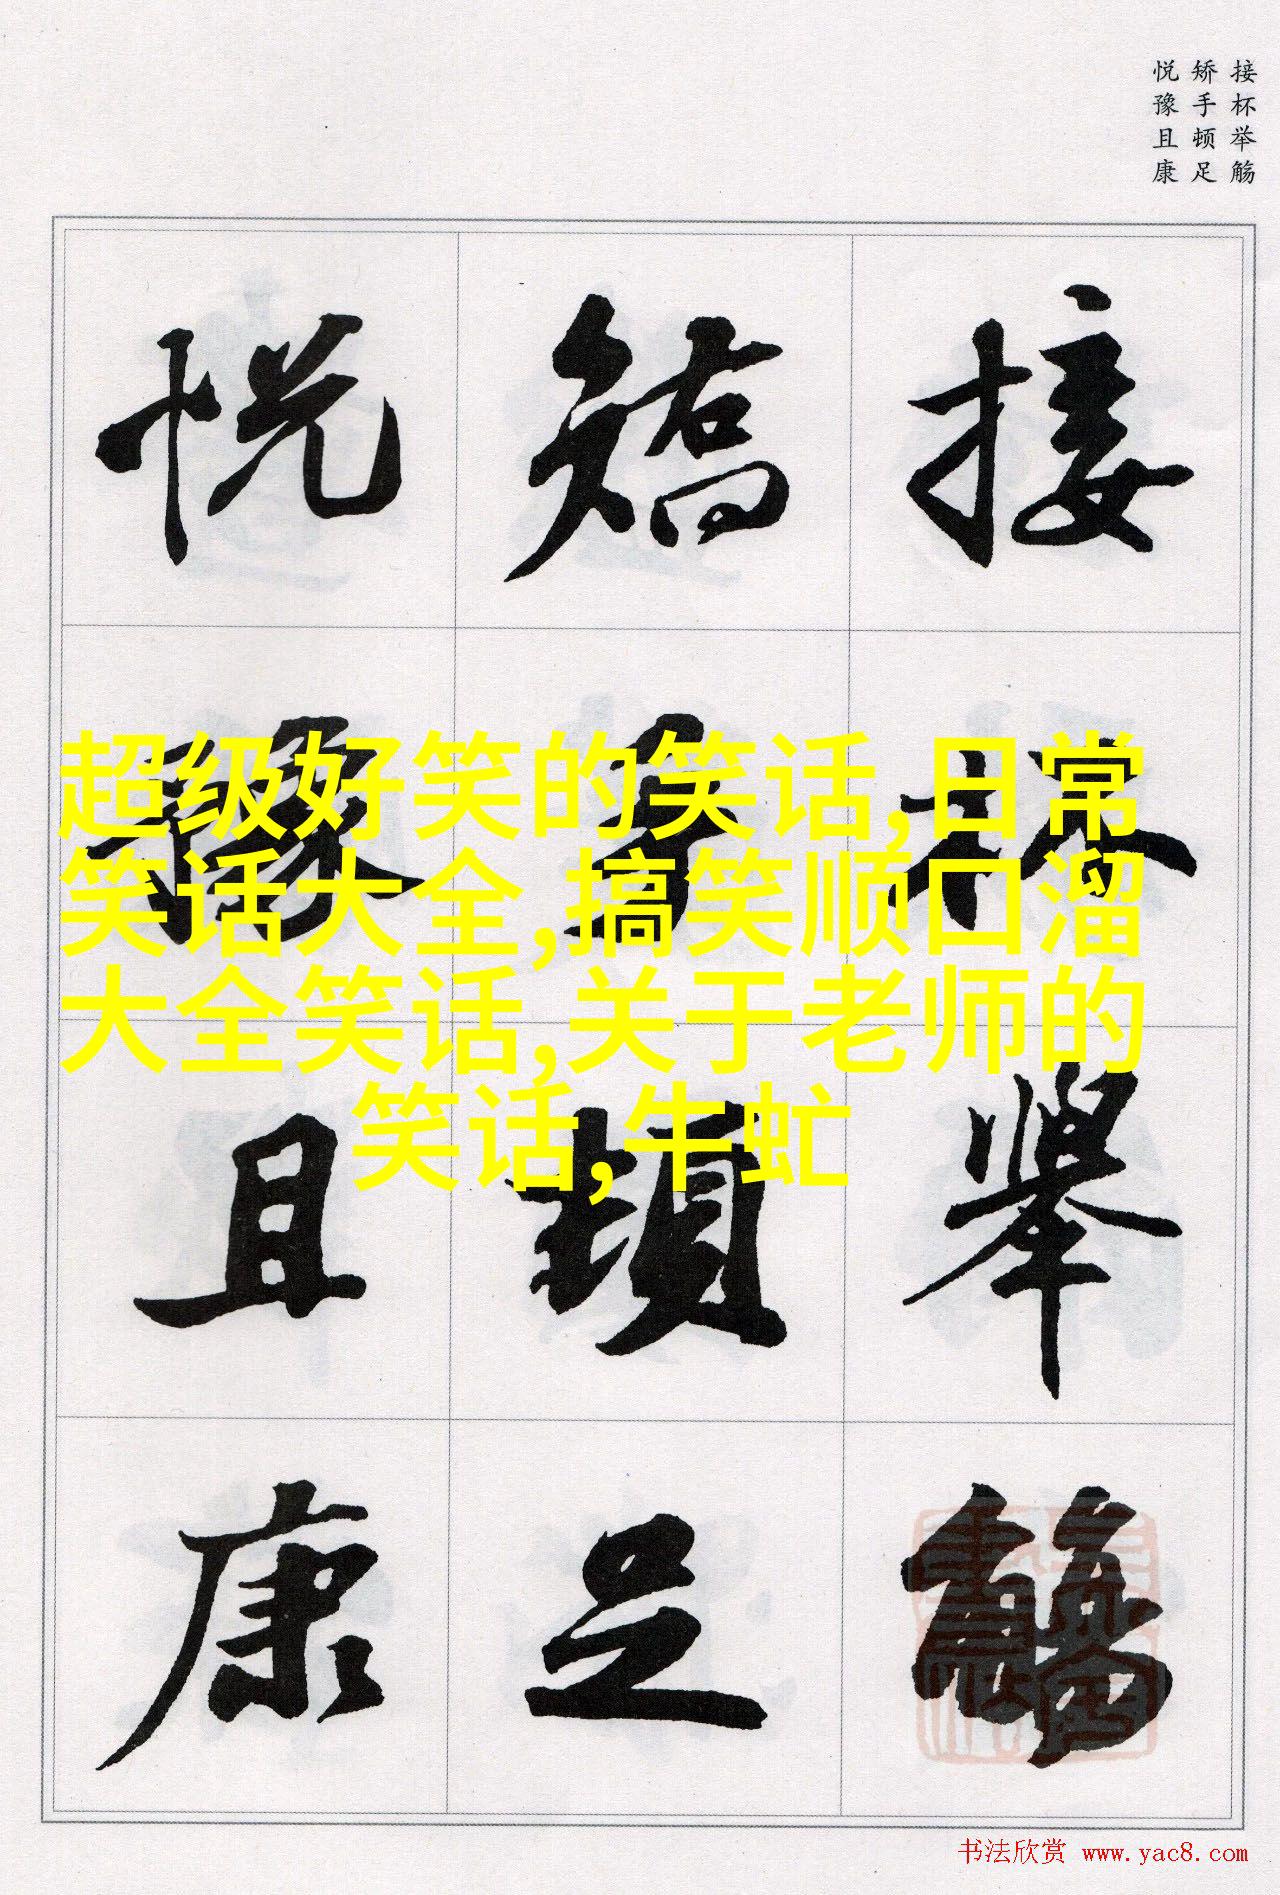 接杯举觞
矫手顿足
悦豫且康
接杯舉觴
矯手頓足
悦豫且康
超级好笑的笑话,日常
笑话大全,搞笑顺口溜
大全笑话,关于老师的
笑话,牛虻
书法欣赏 www.yac8.com